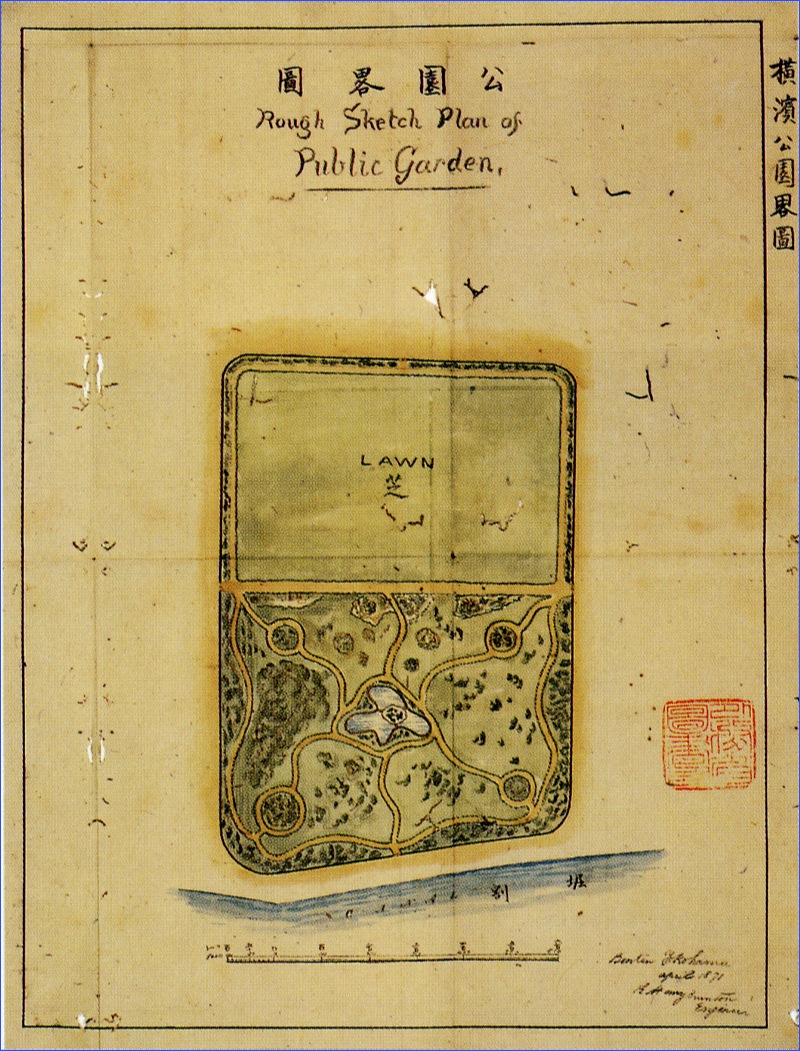 圖畧園公
Rough Sketch Plan of
Public Garden.
橫濱公園畧圖
LAWN
芝
割堀
Benten Yokohama
april 1871
R Henry Brunton
Engineer